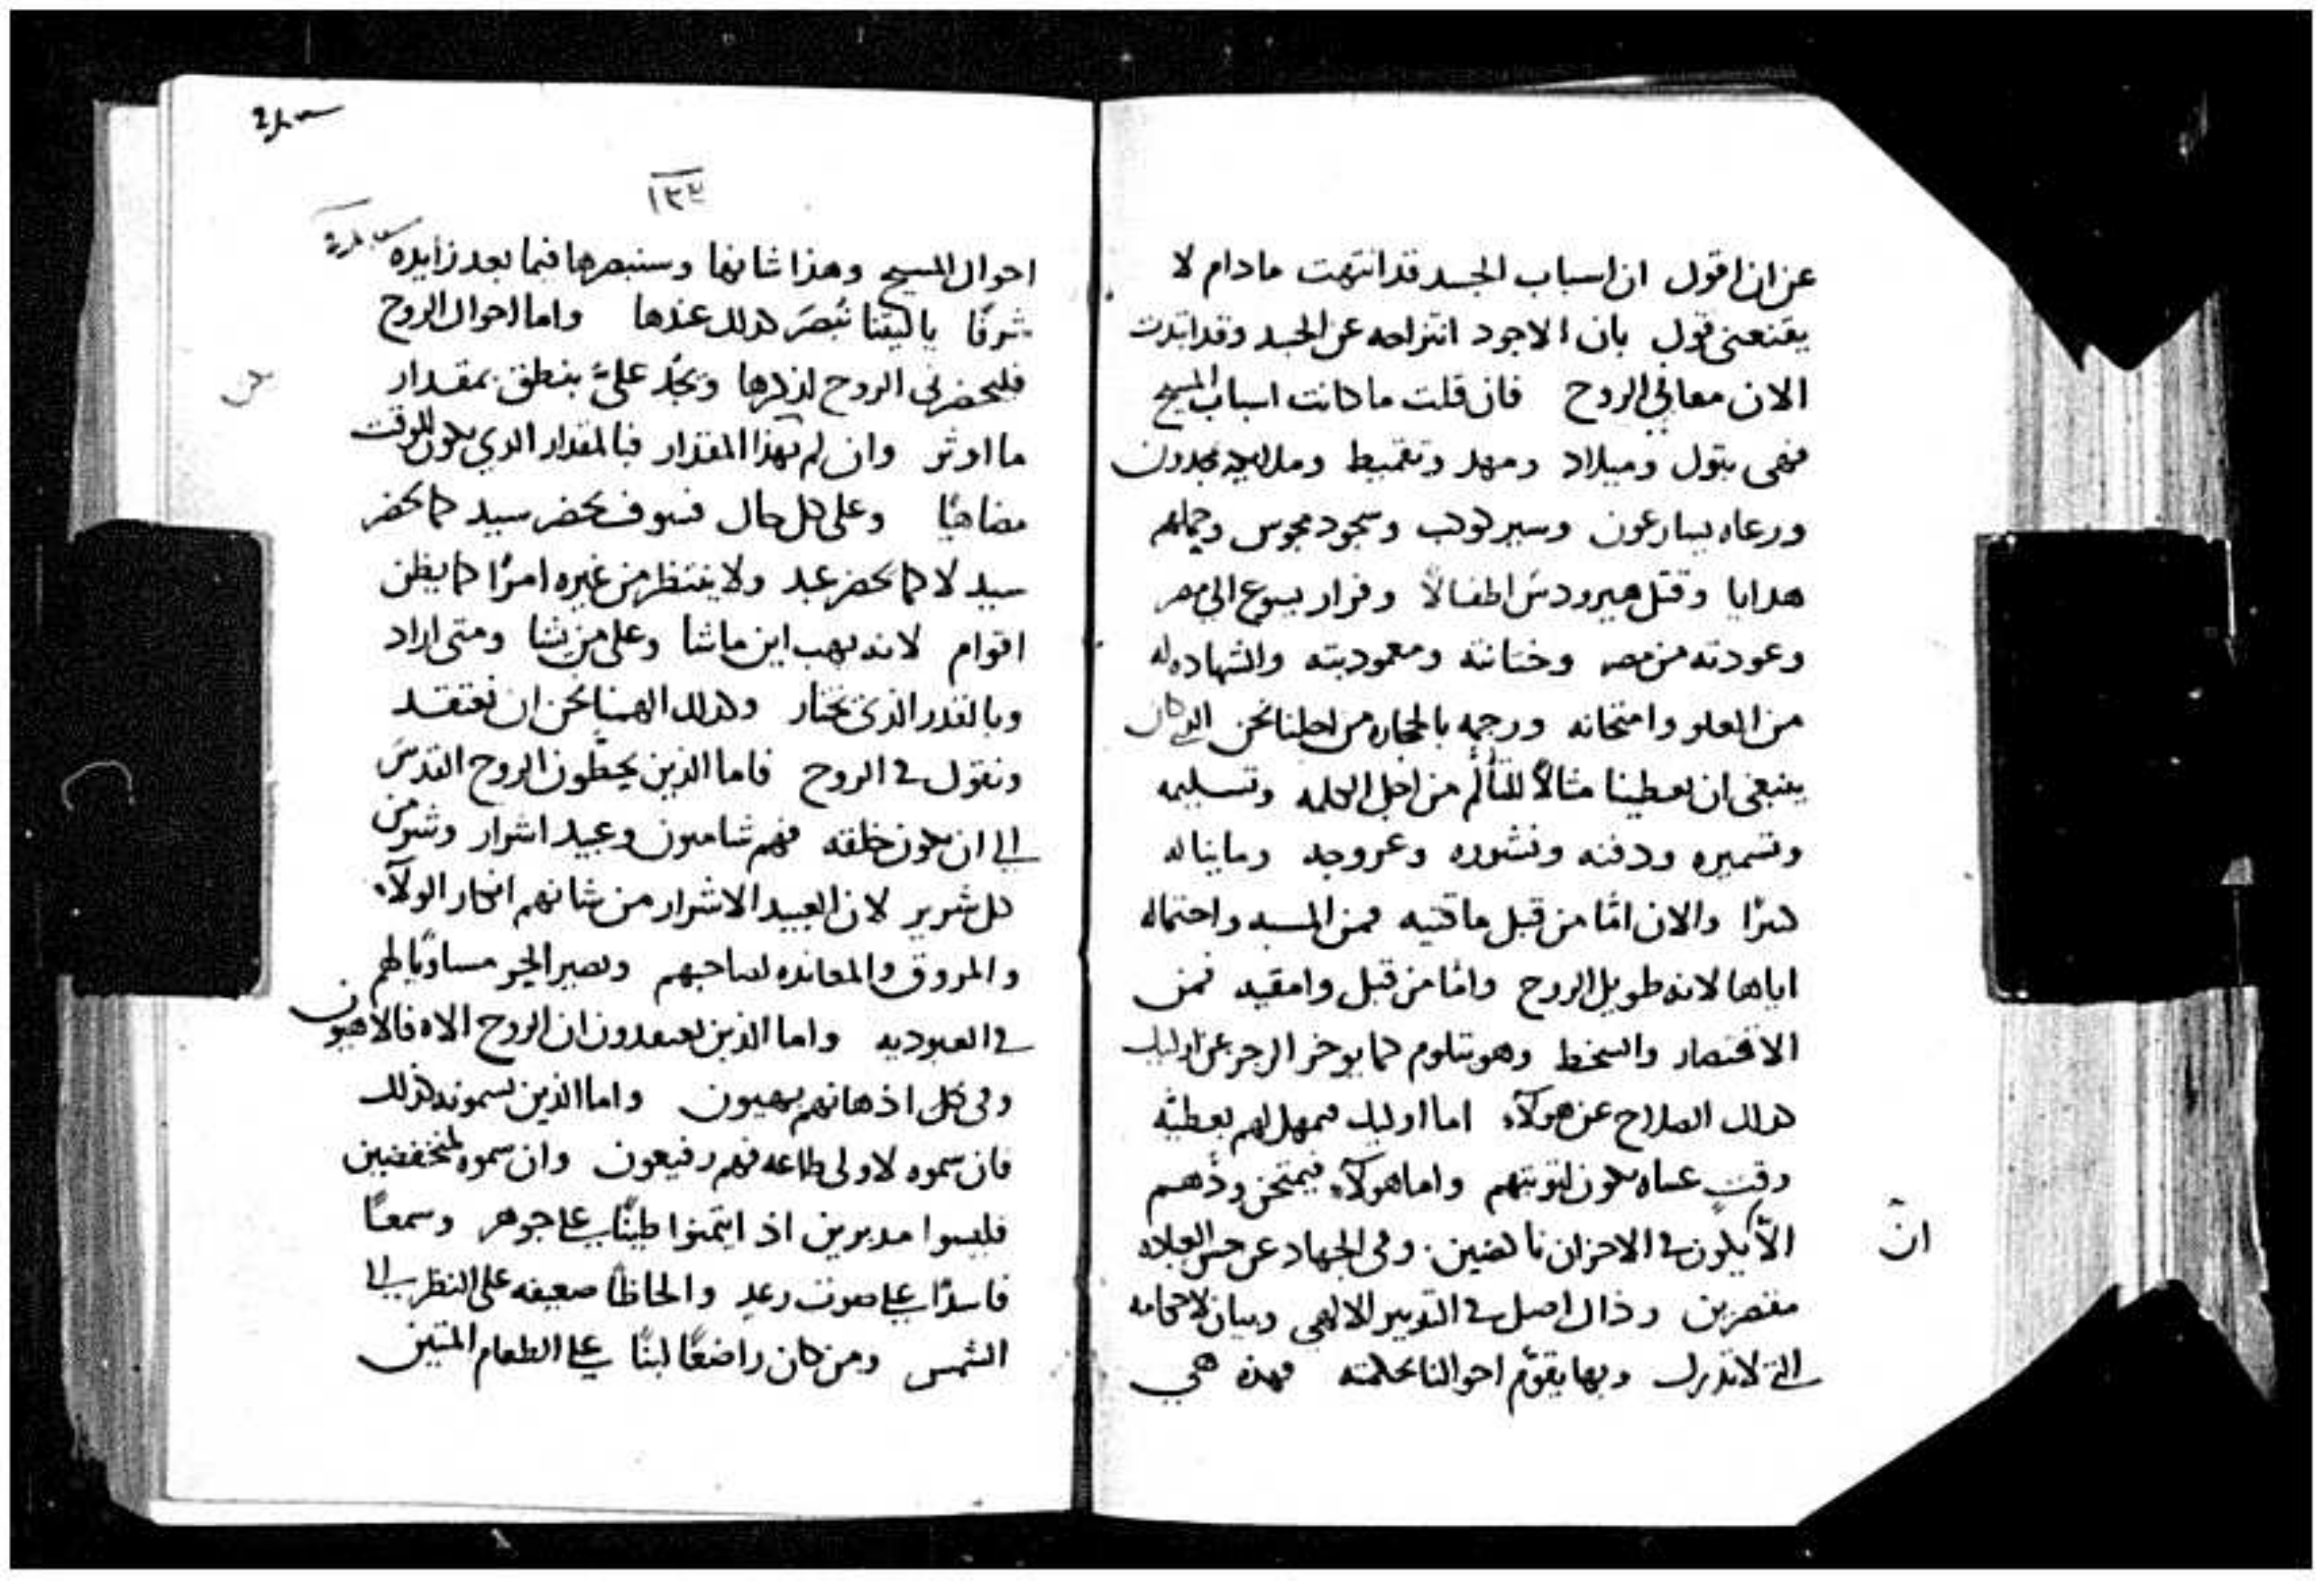 عن ان اقول ان اسباب الجسد قد انتهت مادام لا
يقنعنى قول بان الاجود انتزاحه عن الجسد وقد ابتدت
الان معاني الروح فان قلت ما كانت اسباب المسيح
فهى بتول وميلاد ومهد وتقميط وملايكه يمجدون
ورعاه يسارعون وسير كوكب وسجود مجوس وحملهم
هدايا وقتل هيرودس اطفالاً وفرار يسوع الى مصر
وعودته من مصر وختانته ومعموديته والشهاده له
من العلو وامتحانه ورجمه بالحجاره من اجلنا نحن الذي كان
ينبغى ان يعطينا مثالاً للتألم من اجل الكلمه وتسليمه
وتسميره ودفنه ونشوره وعروجه وما يناله
كثرًا والان امّا من قبل ماقتيه فمن المسبه واحتماله
اياها لانه طويل الروح وامّا من قبل وامقيه فمن
الاقتصار والسخط وهو يتلوم كما يوخر الرجز عن اوليك
كذلك الصلاح عن هولآء اما اوليك فيمهل لهم يعطيه
وقتٍ عساه يكون لتوبتهم واما هولآء فيمتحن ودهم
الّا يكون في الاحزان ناكصين وفي الجهاد عن حسن العباده
ان
مقصرين وذاك اصل في التدبير الالهي وبيان لاحكامه
التي لا تدرك وبها يقوّم احوالنا بحكمته فهذه هي
١٣٣
احوال المسيح وهذا شانها وسنبصرها فيما بعد زايده
شرفًا ياليتنا نُبصَر كذلك عندها واما احوال الروح
فليحضرنى الروح لذكرها ويَجُد علىّ بنطق بمقدار
ما اوثر وان لم بهذا المقدار فبالمقدار الذي يكون للوقت
مضاهيًا وعلى كل حال فسوف يحضر سيد كما يحضر
سيد لا كما يحضر عبد ولا ينتظر من غيره امرًا كما يظن
اقوام لانه يهب اين ماشا وعلى من يشا ومتى اراد
وبالقدر الذى يختار وكذلك الهمنا نحن ان نعتقد
ونقول في الروح فاما الذين يحطّون الروح القدس
الى ان يكون خلقه فهم شامتون وعبيد اشرار وشر من
كل شرير لان العبيد الاشرار من شانهم انكار الولآء
والمروق والمعانده لصاحبهم وتصير الحر مساويًا لهم
في العبوديه واما الذين يعتقدون ان الروح الاه فالاهيون
وفى كل اذهانهم بهيون واما الذين يسمونه كذلك
فان سموه لاولى طاعه فهم رفيعون وان سموه لمنخفضين
فليسوا مدبرين اذ ايتمنوا طينًا على جوهر وسمعًا
فاسدًا على صوت رعدٍ والحاظًا ضعيفه على النظر الى
الشمس ومن كان راضعًا لبنًا على الطعام المتين